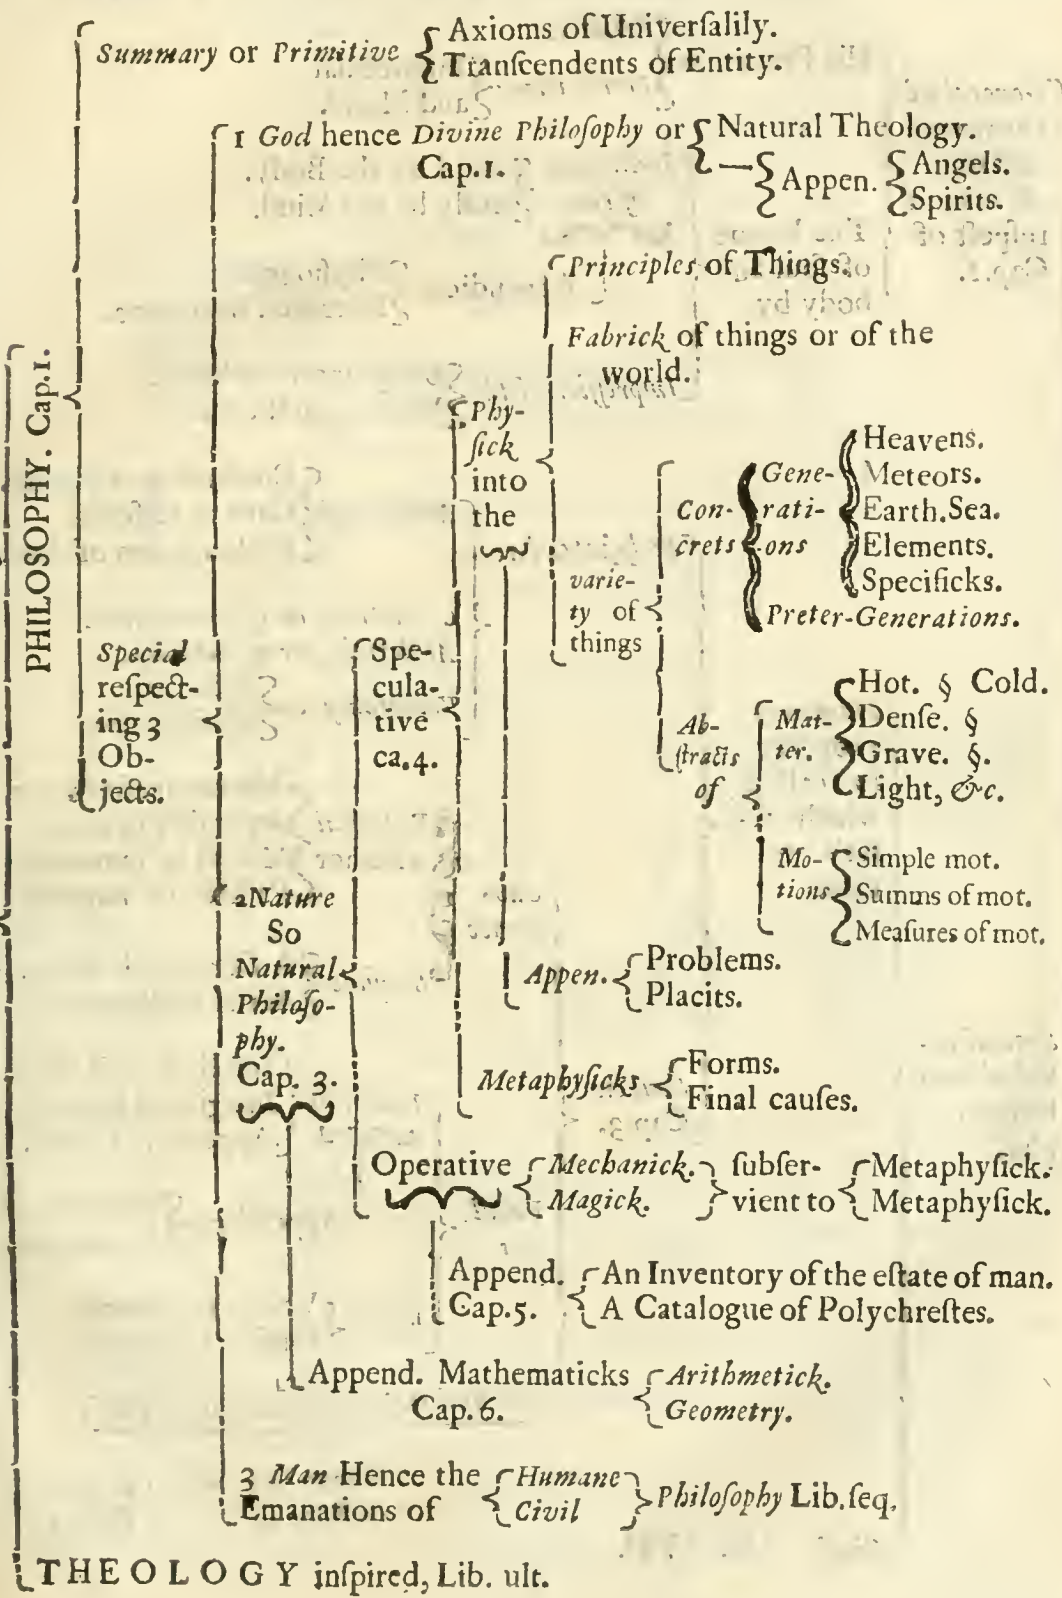 PHILOSOPHY. Cap.1.
Summary or Primitive
Axioms of Univerſalily.
Tranſcendents of Entity.
Special
reſpect-
ing 3
Ob-
jects.
1 God hence Divine Philoſophy or
Cap.1.
Natural Theology.
Appen.
Angels.
Spirits.
2Nature
So
Natural
Philoſo-
phy.
Cap. 3.
Spe-
cula-
tive
ca.4.
Phy-
ſick
into
the
Principles of Things.
Fabrick of things or of the
world.
varie-
ty of
things
Con-
crets
Gene-
rati-
ons
Heavens.
Meteors.
Earth.Sea.
Elements.
Specificks.
Preter-Generations.
Ab-
ſtracts
of
Mat-
ter.
Hot. § Cold.
Denſe. §
Grave. §.
Light, &c.
Mo-
tions
Simple mot.
Summs of mot.
Meaſures of mot.
Appen.
Problems.
Placits.
Metaphyſicks
Forms.
Final cauſes.
Operative
Mechanick.
Magick.
ſubſer-
vient to
Metaphyſick.
Metaphyſick.
Append.
Cap.5.
An Inventory of the eſtate of man.
A Catalogue of Polychreſtes.
Append. Mathematicks
Cap. 6.
Arithmetick.
Geometry.
3 Man Hence the
Emanations of
Humane
Civil
Philoſophy Lib.ſeq.
THEOLOGY inſpired, Lib. ult.